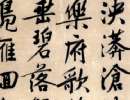 泱漭滄
樂府歌
垂碧落
雁